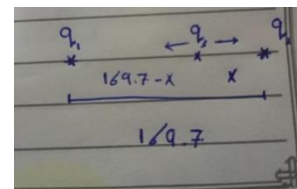 q₁ q₃ q₂
169.7-x x
169.7